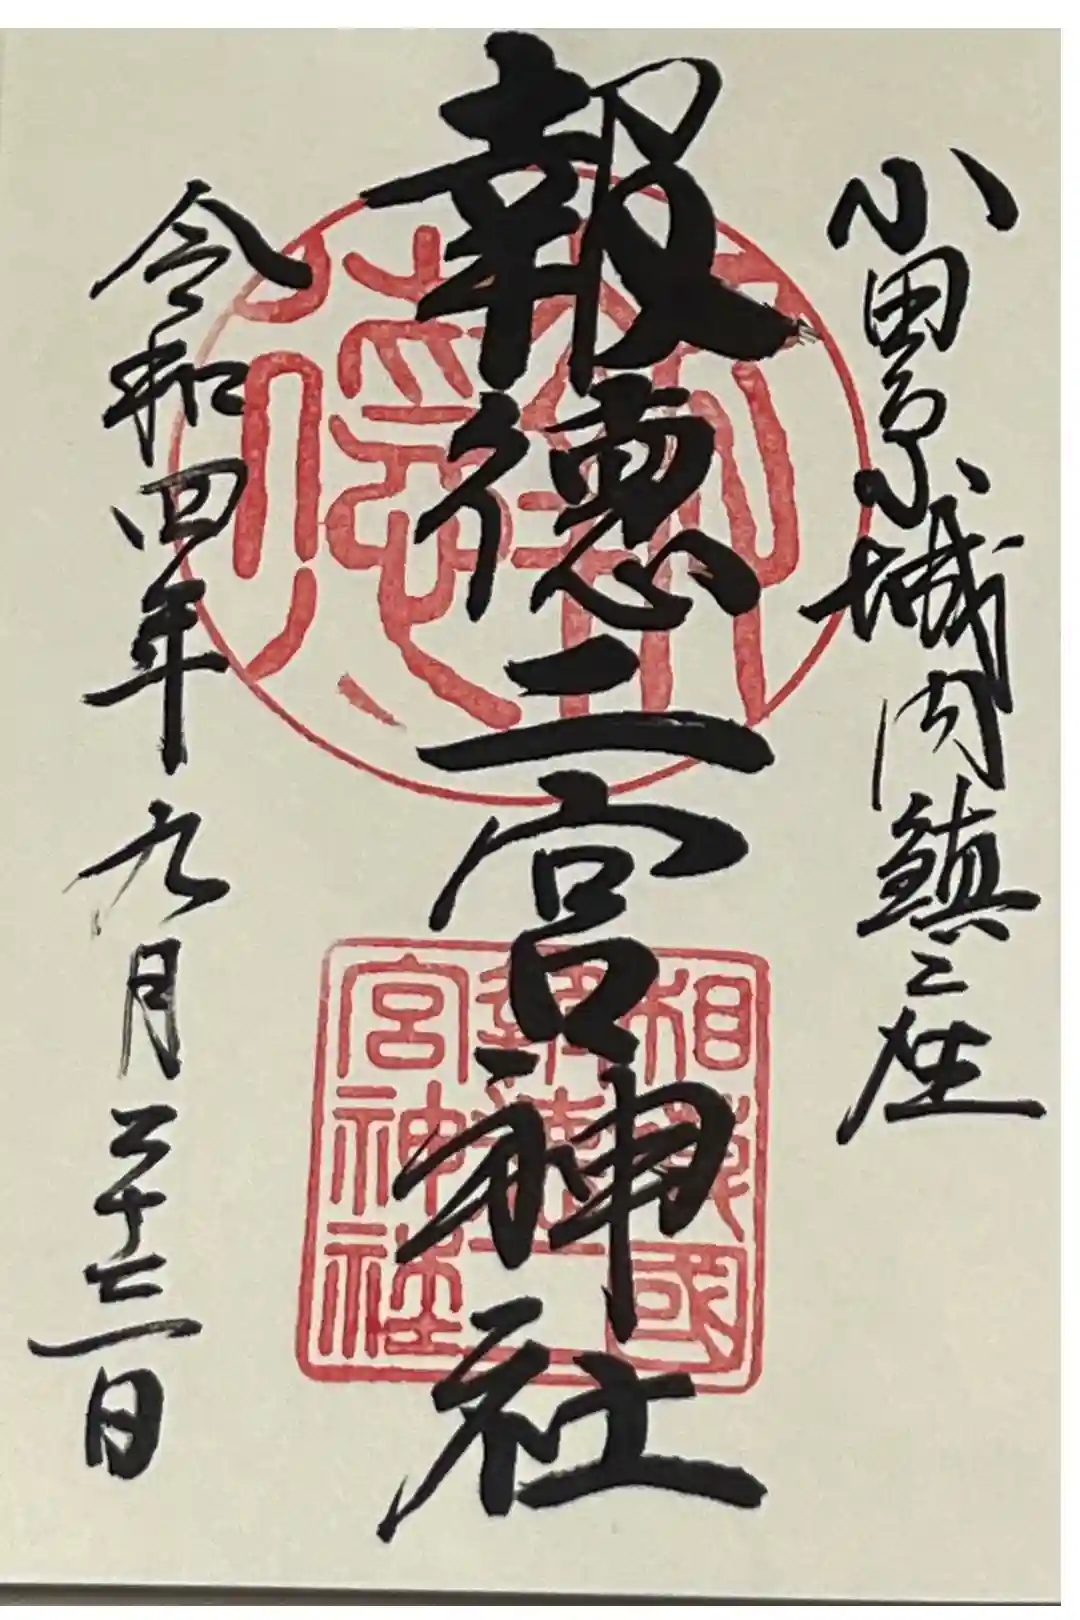 小田原城内鎮座
報徳二宮神社
令和四年九月二十三日
報徳
相模國
報徳二
宮神社